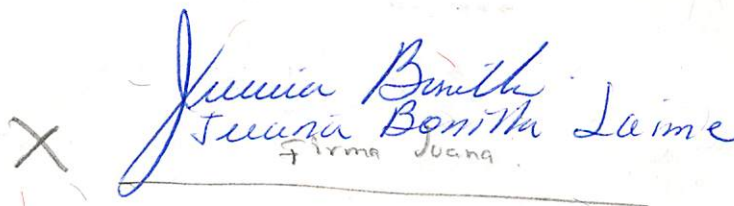 Juana Bonilla
Juana Bonilla Jaime
Firma Juana.
X